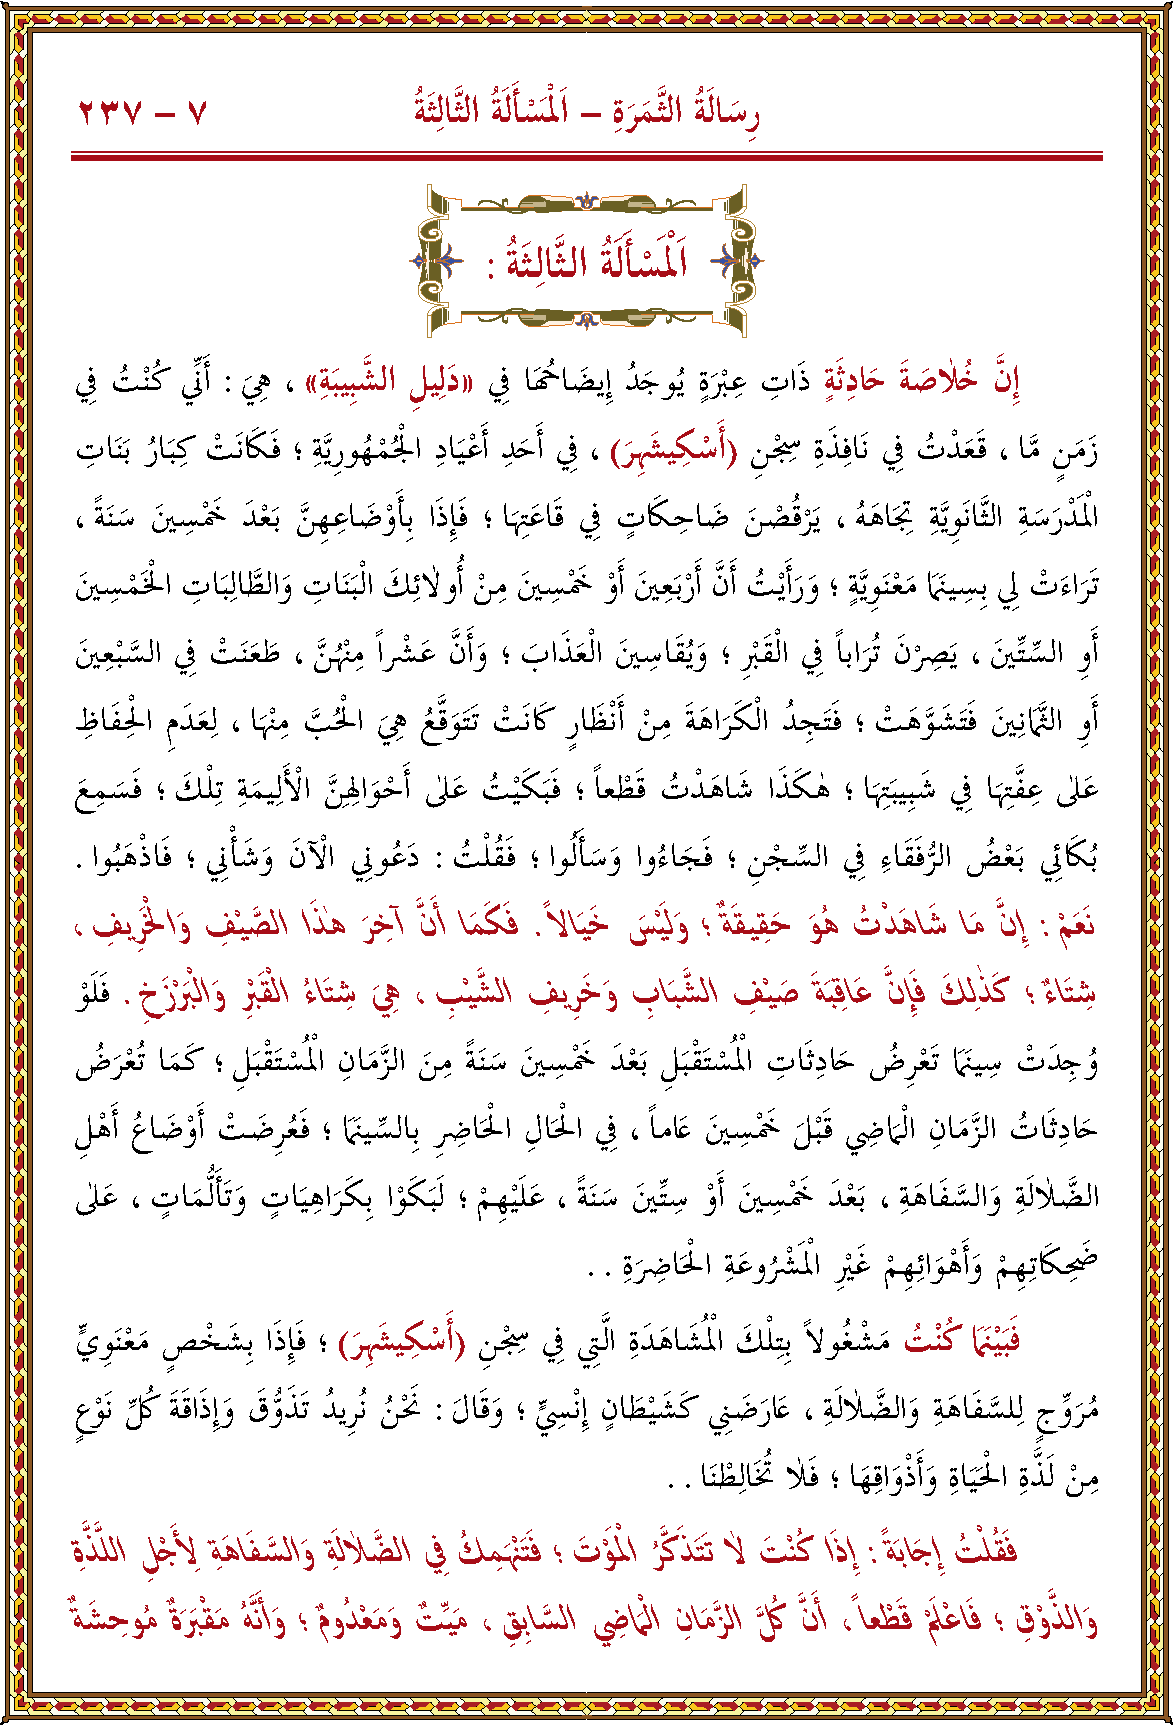 رِسَالَةُ الثَّمَرَةِ – اَلْمَسْأَلَةُ الثَّالِثَةُ ٧ – ٢٣٧
اَلْمَسْأَلَةُ الثَّالِثَةُ :
إِنَّ خُلَاصَةَ حَادِثَةٍ ذَاتِ عِبْرَةٍ يُوجَدُ إِيضَاحُهَا فِي «دَلِيلِ الشَّبِيبَةِ» ، هِيَ : أَنِّي كُنْتُ فِي
زَمَنٍ مَّا ، قَعَدْتُ فِي نَافِذَةِ سِجْنِ (أَسْكِيشَهِرَ) ، فِي أَحَدِ أَعْيَادِ الْجُمْهُورِيَّةِ ؛ فَكَانَتْ كِبَارُ بَنَاتِ
الْمَدْرَسَةِ الثَّانَوِيَّةِ تِجَاهَهُ ، يَرْقُصْنَ ضَاحِكَاتٍ فِي قَاعَتِهَا ؛ فَإِذَا بِأَوْضَاعِهِنَّ بَعْدَ خَمْسِينَ سَنَةً ،
تَرَاءَتْ لِي بِسِينَمَا مَعْنَوِيَّةٍ ؛ وَرَأَيْتُ أَنَّ أَرْبَعِينَ أَوْ خَمْسِينَ مِنْ أُولٰئِكَ الْبَنَاتِ وَالطَّالِبَاتِ الْخَمْسِينَ
أَوِ السِّتِّينَ ، يَصِرْنَ تُرَاباً فِي الْقَبْرِ ؛ وَيُقَاسِينَ الْعَذَابَ ؛ وَأَنَّ عَشْراً مِنْهُنَّ ، طَعَنَتْ فِي السَّبْعِينَ
أَوِ الثَّمَانِينَ فَتَشَوَّهَتْ ؛ فَتَجِدُ الْكَرَاهَةَ مِنْ أَنْظَارٍ كَانَتْ تَتَوَقَّعُ هِيَ الْحُبَّ مِنْهَا ، لِعَدَمِ الْحِفَاظِ
عَلٰى عِفَّتِهَا فِي شَبِيبَتِهَا ؛ هٰكَذَا شَاهَدْتُ قَطْعاً ؛ فَبَكَيْتُ عَلٰى أَحْوَالِهِنَّ الْأَلِيمَةِ تِلْكَ ؛ فَسَمِعَ
بُكَائِي بَعْضُ الرُّفَقَاءِ فِي السِّجْنِ ؛ فَجَاءُوا وَسَأَلُوا ؛ فَقُلْتُ : دَعُونِي الْآنَ وَشَأْنِي ؛ فَاذْهَبُوا .
نَعَمْ : إِنَّ مَا شَاهَدْتُ هُوَ حَقِيقَةٌ ؛ وَلَيْسَ خَيَالاً . فَكَمَا أَنَّ آخِرَ هٰذَا الصَّيْفِ وَالْخَرِيفِ ،
شِتَاءٌ ؛ كَذٰلِكَ فَإِنَّ عَاقِبَةَ صَيْفِ الشَّبَابِ وَخَرِيفِ الشَّيْبِ ، هِيَ شِتَاءُ الْقَبْرِ وَالْبَرْزَخِ . فَلَوْ
وُجِدَتْ سِينَمَا تَعْرِضُ حَادِثَاتِ الْمُسْتَقْبَلِ بَعْدَ خَمْسِينَ سَنَةً مِنَ الزَّمَانِ الْمُسْتَقْبَلِ ؛ كَمَا تُعْرَضُ
حَادِثَاتُ الزَّمَانِ الْمَاضِي قَبْلَ خَمْسِينَ عَاماً ، فِي الْحَالِ الْحَاضِرِ بِالسِّينَمَا ؛ فَعُرِضَتْ أَوْضَاعُ أَهْلِ
الضَّلَالَةِ وَالسَّفَاهَةِ ، بَعْدَ خَمْسِينَ أَوْ سِتِّينَ سَنَةً ، عَلَيْهِمْ ؛ لَبَكَوْا بِكَرَاهِيَاتٍ وَتَأَلُّمَاتٍ ، عَلٰى
ضَحِكَاتِهِمْ وَأَهْوَائِهِمْ غَيْرِ الْمَشْرُوعَةِ الْحَاضِرَةِ . .
فَبَيْنَمَا كُنْتُ مَشْغُولاً بِتِلْكَ الْمُشَاهَدَةِ الَّتِي فِي سِجْنِ (أَسْكِيشَهِرَ) ؛ فَإِذَا بِشَخْصٍ مَعْنَوِيٍّ
مُرَوِّجٍ لِلسَّفَاهَةِ وَالضَّلَالَةِ ، عَارَضَنِي كَشَيْطَانٍ إِنْسِيٍّ ؛ وَقَالَ : نَحْنُ نُرِيدُ تَذَوُّقَ وَإِذَاقَةَ كُلِّ نَوْعٍ
مِنْ لَذَّةِ الْحَيَاةِ وَأَذْوَاقِهَا ؛ فَلَا تُخَالِطْنَا . .
فَقُلْتُ إِجَابَةً : إِذَا كُنْتَ لَا تَتَذَكَّرُ الْمَوْتَ ؛ فَتَنْهَمِكُ فِي الضَّلَالَةِ وَالسَّفَاهَةِ لِأَجْلِ اللَّذَّةِ
وَالذَّوْقِ ؛ فَاعْلَمْ قَطْعاً ، أَنَّ كُلَّ الزَّمَانِ الْمَاضِي السَّابِقِ ، مَيِّتٌ وَمَعْدُومٌ ؛ وَأَنَّهُ مَقْبَرَةٌ مُوحِشَةٌ